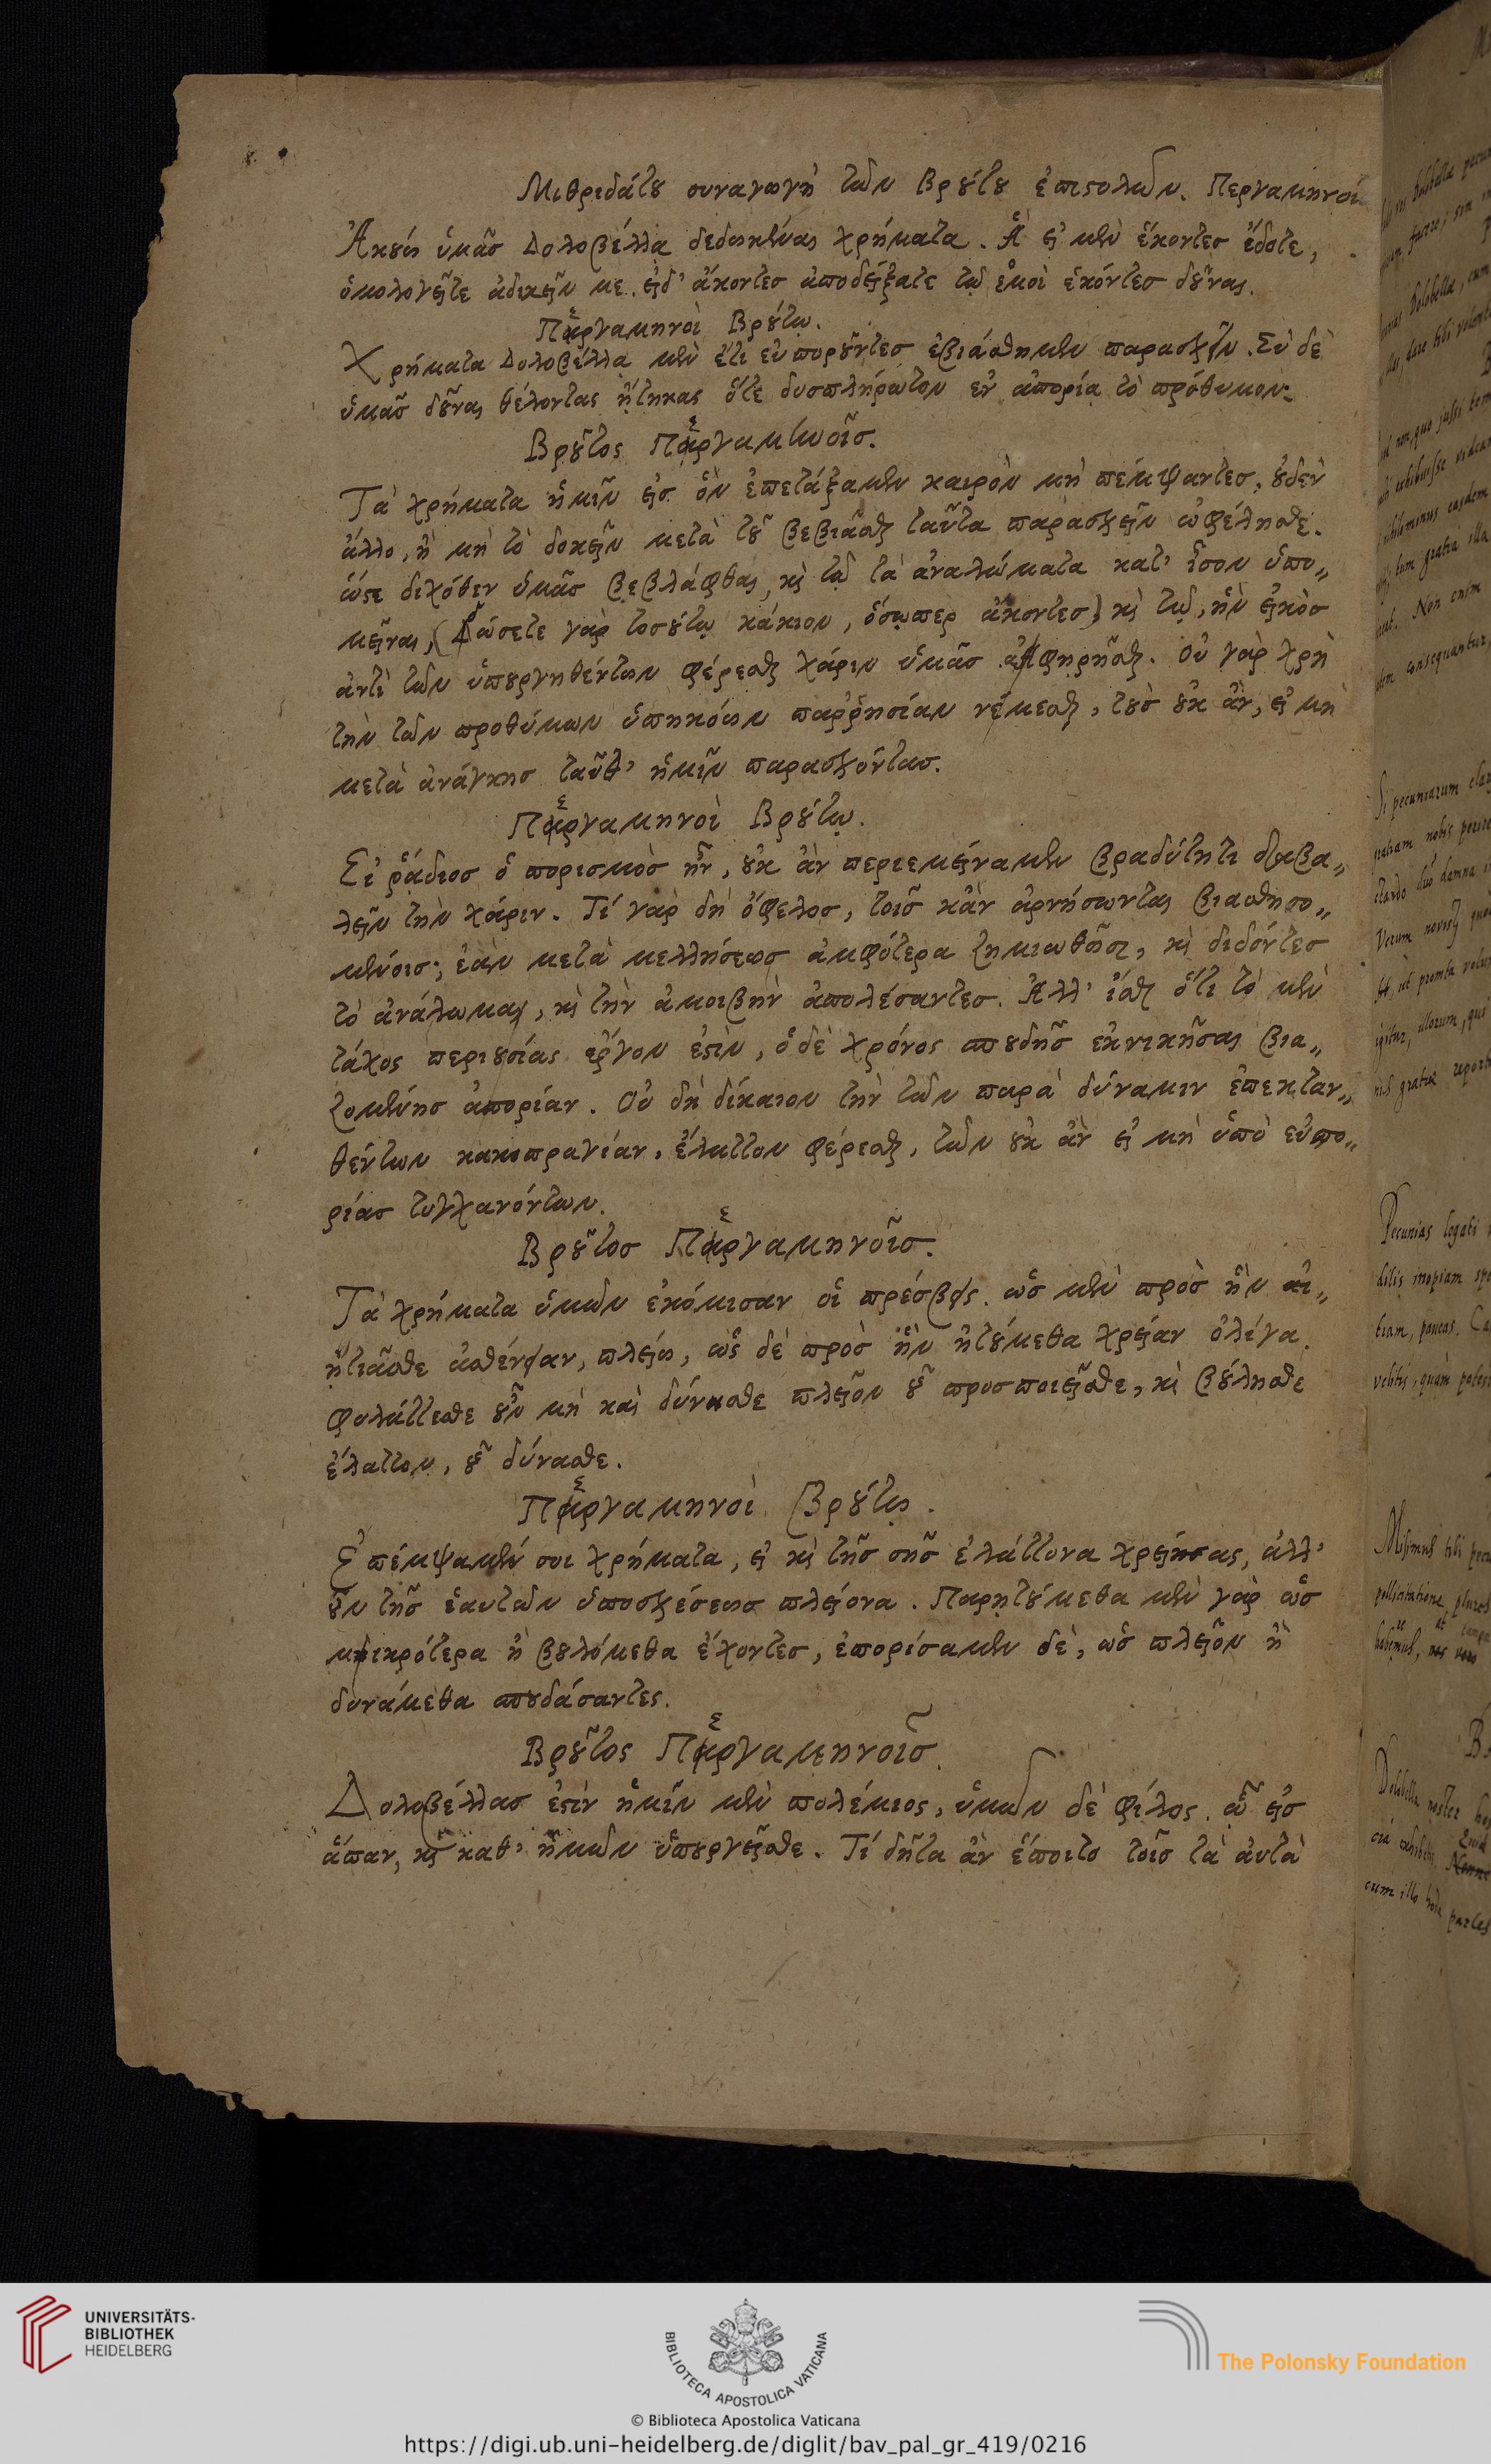 Μιθριδάτου συναγωγὴ τῶν Βρούτου ἐπιστολῶν. Περγαμηνοῖ
Ἀκούω ὑμᾶς Δολοβέλλᾳ δεδωκέναι χρήματα. Ἃ εἰ μὲν ἑκόντες ἔδοτε,
ὁμολογεῖτε ἀδικεῖν με. εἰ δ' ἄκοντες ἀποδείξατε τῷ ἐμοὶ ἑκόντες δοῦναι.
Περγαμηνοὶ Βρούτῳ.
Χρήματα Δολοβέλλᾳ μὲν ἔτι εὐποροῦντες ἐβιάσθημεν παρασχεῖν. Σὺ δὲ
ὑμᾶς δοῦναι θέλοντας ᾔτηκας ὅτε δυσπλήρωτον ἐν ἀπορίᾳ τὸ πρόθυμον.
Βροῦτος Περγαμηνοῖς.
Τὰ χρήματα ἡμῖν εἰς ὃν ἐπετάξαμεν καιρὸν μὴ πέμψαντες, οὐδὲν
ἄλλο, ἢ μὴ τὸ δοκεῖν μετὰ τοῦ βεβιᾶσθαι ταῦτα παρασχεῖν ὠφέλησθε.
ὥστε διχόθεν ὑμᾶς βεβλάφθαι, καὶ τῷ τὰ ἀναλώματα κατ' ἴσον ὑπο„
μεῖναι, (Δώσετε γὰρ τοσούτῳ κάκιον, ὅσῳπερ ἄκοντες) καὶ τῷ, ἣν εἰκὸς
ἀντὶ τῶν ὑπουργηθέντων φέρεσθαι χάριν ὑμᾶς ἀφῃρῆσθαι. Οὐ γὰρ χρὴ
τὴν τῶν προθύμων ὑπηκόων παῤῥησίαν νέμεσθαι, τοὺς οὐκ ἂν, εἰ μὴ
μετὰ ἀνάγκης ταῦθ' ἡμῖν παρασχόντας.
Περγαμηνοὶ Βρούτῳ.
Εἰ ῥᾴδιος ὁ πορισμὸς ἦν, οὐκ ἂν περιεμείναμεν βραδύτητι διαβα„
λεῖν τὴν χάριν. Τί γὰρ δὴ ὄφελος, τοῖς κἂν ἀρνήσωνται βιασθησο„
μένοις; ἐὰν μετὰ μελλήσεως ἀμφότερα ζημιωθῶσι, καὶ διδόντες
τὸ ἀνάλωμα, καὶ τὴν ἀμοιβὴν ἀπολέσαντες. Ἀλλ' ἴσθι ὅτι τὸ μὲν
τάχος περιουσίας ἔργον ἐστὶν, ὁ δὲ χρόνος σπουδῆς ἐκνικῆσαι βια„
ζομένης ἀπορίαν. Οὐ δὴ δίκαιον τὴν τῶν παρὰ δύναμιν ἐπεκταν„
θέντων κακοπραγίαν, ἔλαττον φέρεσθαι, τῶν οὐκ ἂν εἰ μὴ ὑπὸ εὐπο„
ρίας τυγχανόντων.
Βροῦτος Περγαμηνοῖς.
Τὰ χρήματα ὑμῶν ἐκόμισαν οἱ πρέσβεις. ὡς μὲν πρὸς ἣν αἰ„
ᾐτιᾶσθε ἀσθένειαν, πλείω, ὡς δὲ πρὸς ἣν ᾐτούμεθα χρείαν ὀλίγα.
Φυλάττεσθε οὖν μὴ καὶ δύνασθε πλεῖον οὗ προσποιεῖσθε, καὶ βούλησθε
ἔλαττον, οὗ δύνασθε.
Περγαμηνοὶ Βρούτῳ.
Ἐπέμψαμέν σοι χρήματα, εἰ καὶ τῆς σῆς ἐλάττονα χρείας, ἀλλ'
οὖν τῆς ἑαυτῶν ὑποσχέσεως πλείονα. Παρῃτούμεθα μὲν γὰρ ὡς
μικρότερα ἢ βουλόμεθα ἔχοντες, ἐπορίσαμεν δὲ, ὡς πλεῖον ἢ
δυνάμεθα σπουδάσαντες.
Βροῦτος Περγαμηνοῖς.
Δολοβέλλας ἐστὶν ἡμῖν μὲν πολέμιος, ὑμῶν δὲ φίλος. ᾧ εἰς
ἅπαν, καὶ καθ' ἡμῶν ὑπουργεῖσθε. Τί δῆτα ἂν ἕποιτο τοῖς τὰ αὐτὰ
UNIVERSITÄTS-
BIBLIOTHEK
HEIDELBERG
BIBLIOTECA APOSTOLICA VATICANA
The Polonsky Foundation
© Biblioteca Apostolica Vaticana
https://digi.ub.uni-heidelberg.de/diglit/bav_pal_gr_419/0216